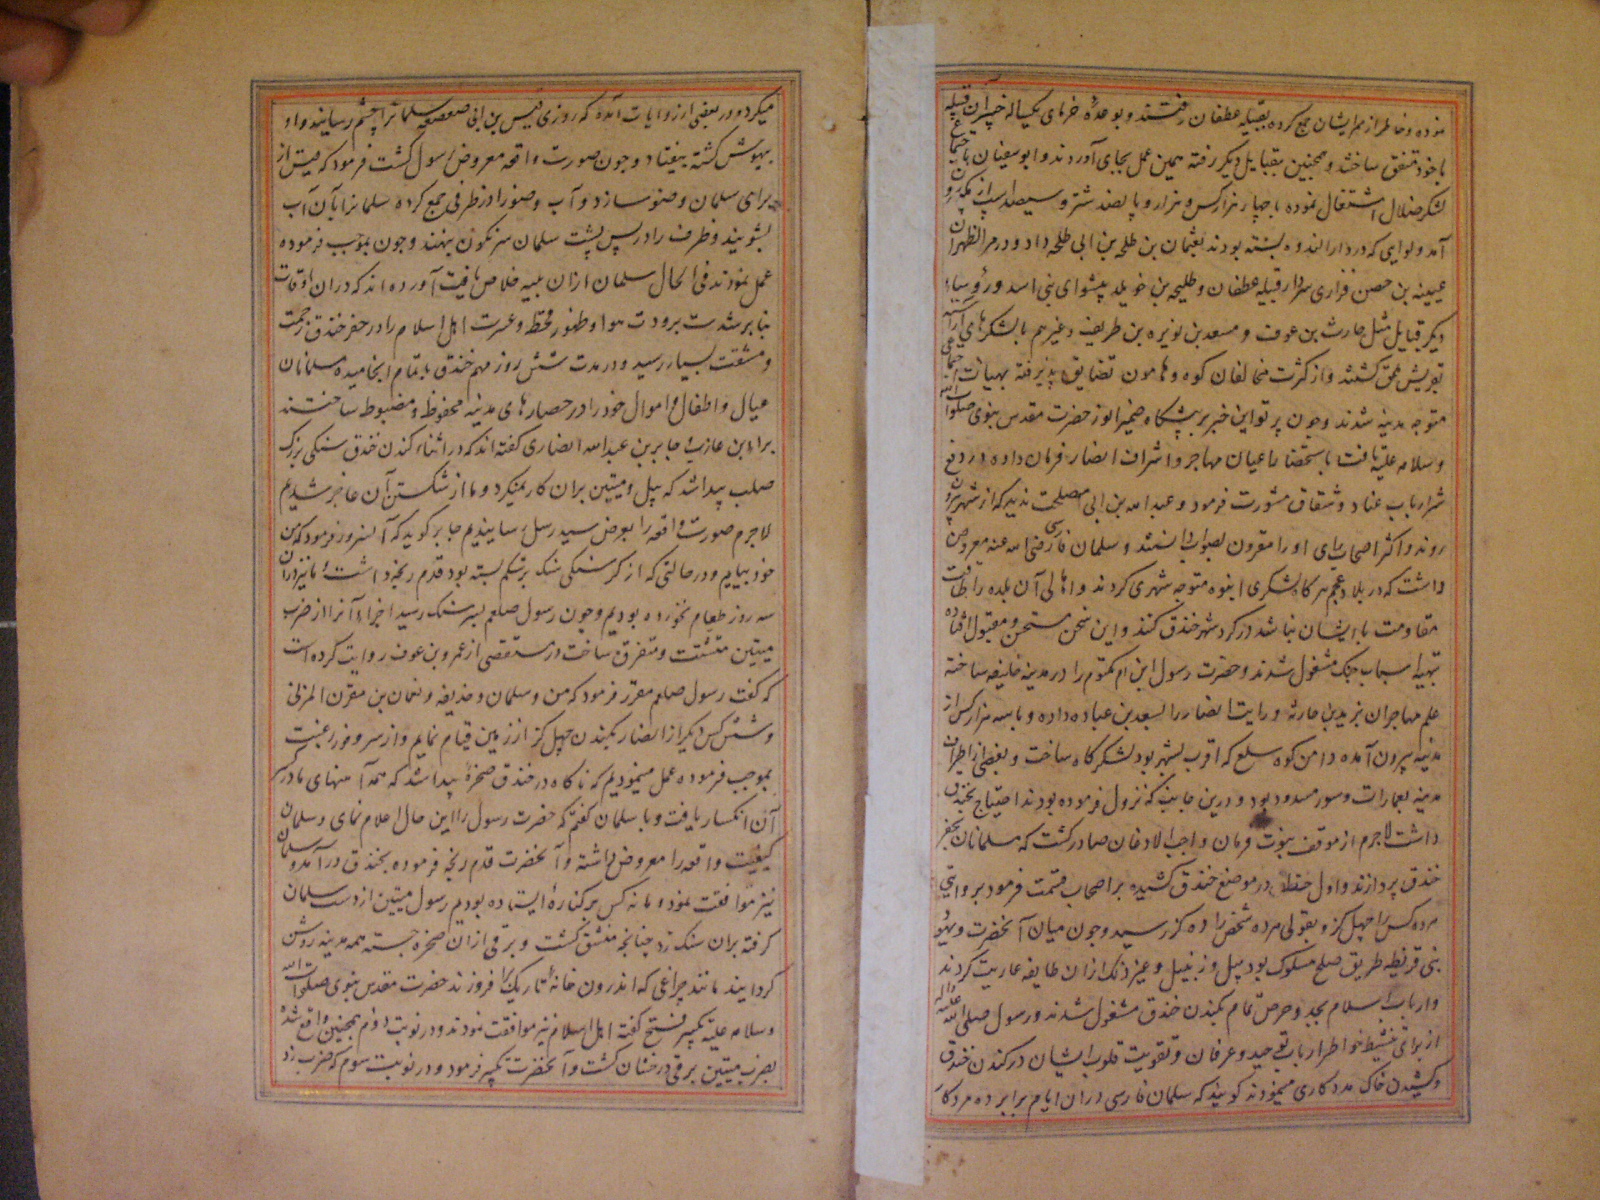 نموده و خاطر از ممر ایشان جمع کرده بقبیله غطفان رفتند و بوعده خرمای یکساله خیبر آن قبیله
با خود متفق ساختند و همچنین بقبایل دیگر رفته همین عمل بجای آوردند و ابوسفیان باجتماع
لشکر ضلال اشتغال نموده با چهار هزار کس و هزار و پانصد شتر و سیصد اسب از مکه بیرون
آمد و لوای که در دارالندوه بسته بودند بعثمان بن طلحه بن ابی طلحه داد و در مرالظهران
عیینه بن حصن فزاری سردار قبیله غطفان و طلیحه بن خویلد پیشوای بنی اسد و رؤسای
دیگر قبایل مثل حارث بن عوف و مسعد بن نویره بن طریف و غیرهم با لشکرهای آراسته
بقریش ملحق گشتند و از کثرت مخالفان کوه و هامون تضایق پذیرفته بهیات اجماعی
متوجه مدینه شدند و چون پرتو این خبر بر پیشگاه ضمیر انور حضرت مقدس نبوی صلوات الله
و سلامه علیه تافت باستحضار اعیان مهاجر و اشراف انصار فرمان داده در دفع
شر ارباب عناد و شقاق مشورت فرمود و عبدالله بن ابی مصلحت ندید که از شهر بیرون
روند و اکثر اصحاب رای او را مقرون بصواب دانستند و سلمان فارسی رضی الله عنه معروض
داشت که در بلاد عجم هر گاه لشکری انبوه متوجه شهری کردند و اهالی آن بلده را طاقت
مقاومت با ایشان نباشد در گرد شهر خندق کنند و این سخن مستحسن و مقبول افتاده
بتهیه اسباب جنگ مشغول شدند و حضرت رسول ابن ام مکتوم را در مدینه خلیفه ساخته
علم مهاجران بزید بن حارثه و رایت انصار را بسعد بن عباده داده و با سه هزار کس از
مدینه بیرون آمده دامن کوه سلع که اقرب بشهر بود لشکرگاه ساخت و بعضی از اطراف
مدینه بعمارات و سور مسدود بود و درین جانب که نزول فرموده بودند احتیاج بخندق
داشت لاجرم از موقف نبوت فرمان واجب الاذعان صادر گشت که مسلمانان بحفر
خندق پردازند و اول خط در موضع خندق کشیده بر اصحاب قسمت فرمود بروایتی
هر ده کس را چهل گز و بقولی هر ده شخص را ده گز رسید و چون میان آنحضرت و یهود
بنی قریظه طریق صلح مسلوک بود بیل و زنبیل و غیر ذلک از آن طایفه عاریت کردند
و ارباب اسلام بجد و حرص تمام بکندن خندق مشغول شدند و رسول صلی الله علیه و آله
از برای تنشیط خواطر ارباب توحید و عرفان و تقویت قلوب ایشان در کندن خندق
و کشیدن خاک مددکاری مینمودند گویند که سلمان فارسی در ان ایام برابر ده مرد کار
میکرد و در بعضی از روایات آمده که روزی قیس بن ابی صعصعه سلمانرا چشم رسانید و او
بیهوش گشته بیفتاد و چون صورت واقعه معروض رسول گشت فرمود که قیس از
برای سلمان وضو سازد و آب وضو را در ظرفی جمع کرده سلمانرا بآن آب
بشویند و ظرف را در پس پشت سلمان سرنکون بنهند و چون بموجب فرموده
عمل نمودند فی الحال سلمان از ان بلیه خلاص یافت آورده اند که در ان اوقات
بنا بر شدت برودت هوا و ظهور قحط و عسرت اهل اسلام را در حفر خندق زحمت
و مشقت بسیار رسید و در مدت شش روز مهم خندق باتمام انجامیده مسلمانان
عیال و اطفال و اموال خود را در حصارهای مدینه محفوظ و مضبوط ساختند
براء بن عازب و جابر بن عبدالله انصاری گفته اند که در اثناء کندن خندق سنگی بزرگ
صلب پیدا شد که بیل و میتین بران کار نمیکرد و ما از شکستن آن عاجز شدیم
لاجرم صورت واقعه را بعرض سید رسل رسانیدیم جابر گوید که آنسرور فرمود که من
خود بیایم و در حالتی که از گرسنگی سنگ بر شکم بسته بود قدم رنجه داشت و ما نیز در ان
سه روز طعام نخورده بودیم و چون رسول صلعم بسر سنگ رسید اجزاء آنرا از ضرب
میتین متشتت و متفرق ساخت و در مستقصی از عمرو بن عوف روایت کرده است
که گفت رسول صلعم مقرر فرمود که من و سلمان و حذیفه و نعمان بن مقرن المزنی
و شش کس دیگر از انصار بکندن چهل گز از زمین قیام نمایم و از سر وفور رغبت
بموجب فرموده عمل مینمودیم که ناگاه در خندق صخره پیدا شد که همه آهنهای ما در کسر
آن انکسار یافت و با سلمان گفتم که حضرت رسول را این حال اعلام نمای و سلمان
کیفیت واقعه را معروض داشته و آنحضرت قدم رنجه فرموده بخندق در آمد و سلمان
نیز موافقت نمود و ما نه کس بر کناره ایستاده بودیم رسول میتین از دست سلمان
گرفته بران سنگ زد چنانچه منشق گشت و برقی از ان صخره جسته همه مدینه روشن
گردانید مانند چراغی که اندرون خانه تاریک افروزند حضرت مقدس نبوی صلوات الله
و سلامه علیه تکبیر فتح گفته اهل اسلام نیز موافقت نمودند و در نوبت دوم همچنین واقع شد
بضرب میتین برقی درخشان گشت و آنحضرت تکبیر فرمود و در نوبت سوم که ضرب زد